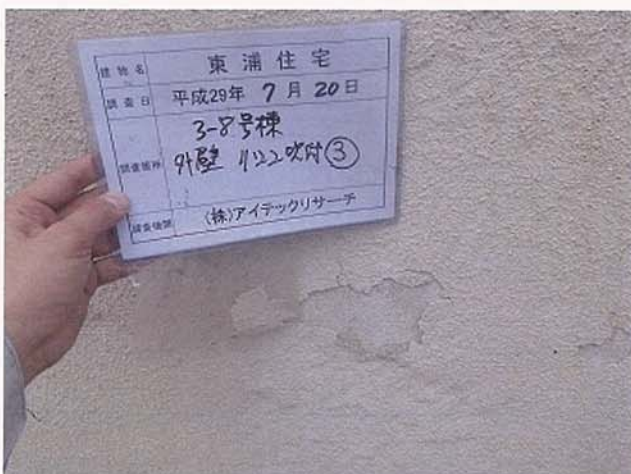 建物名 東浦住宅
調査日 平成29年 7月 20日
3-8号棟
調査箇所 外壁 リシン吹付③
調査機関 (株)アイテックリサーチ